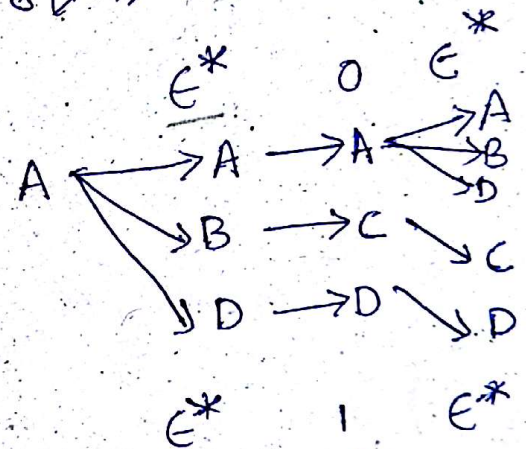 ϵ* 0 ϵ*
A → A → A → A
→ B
→ D
→ B → C → C
→ D → D → D
ϵ* 1 ϵ*